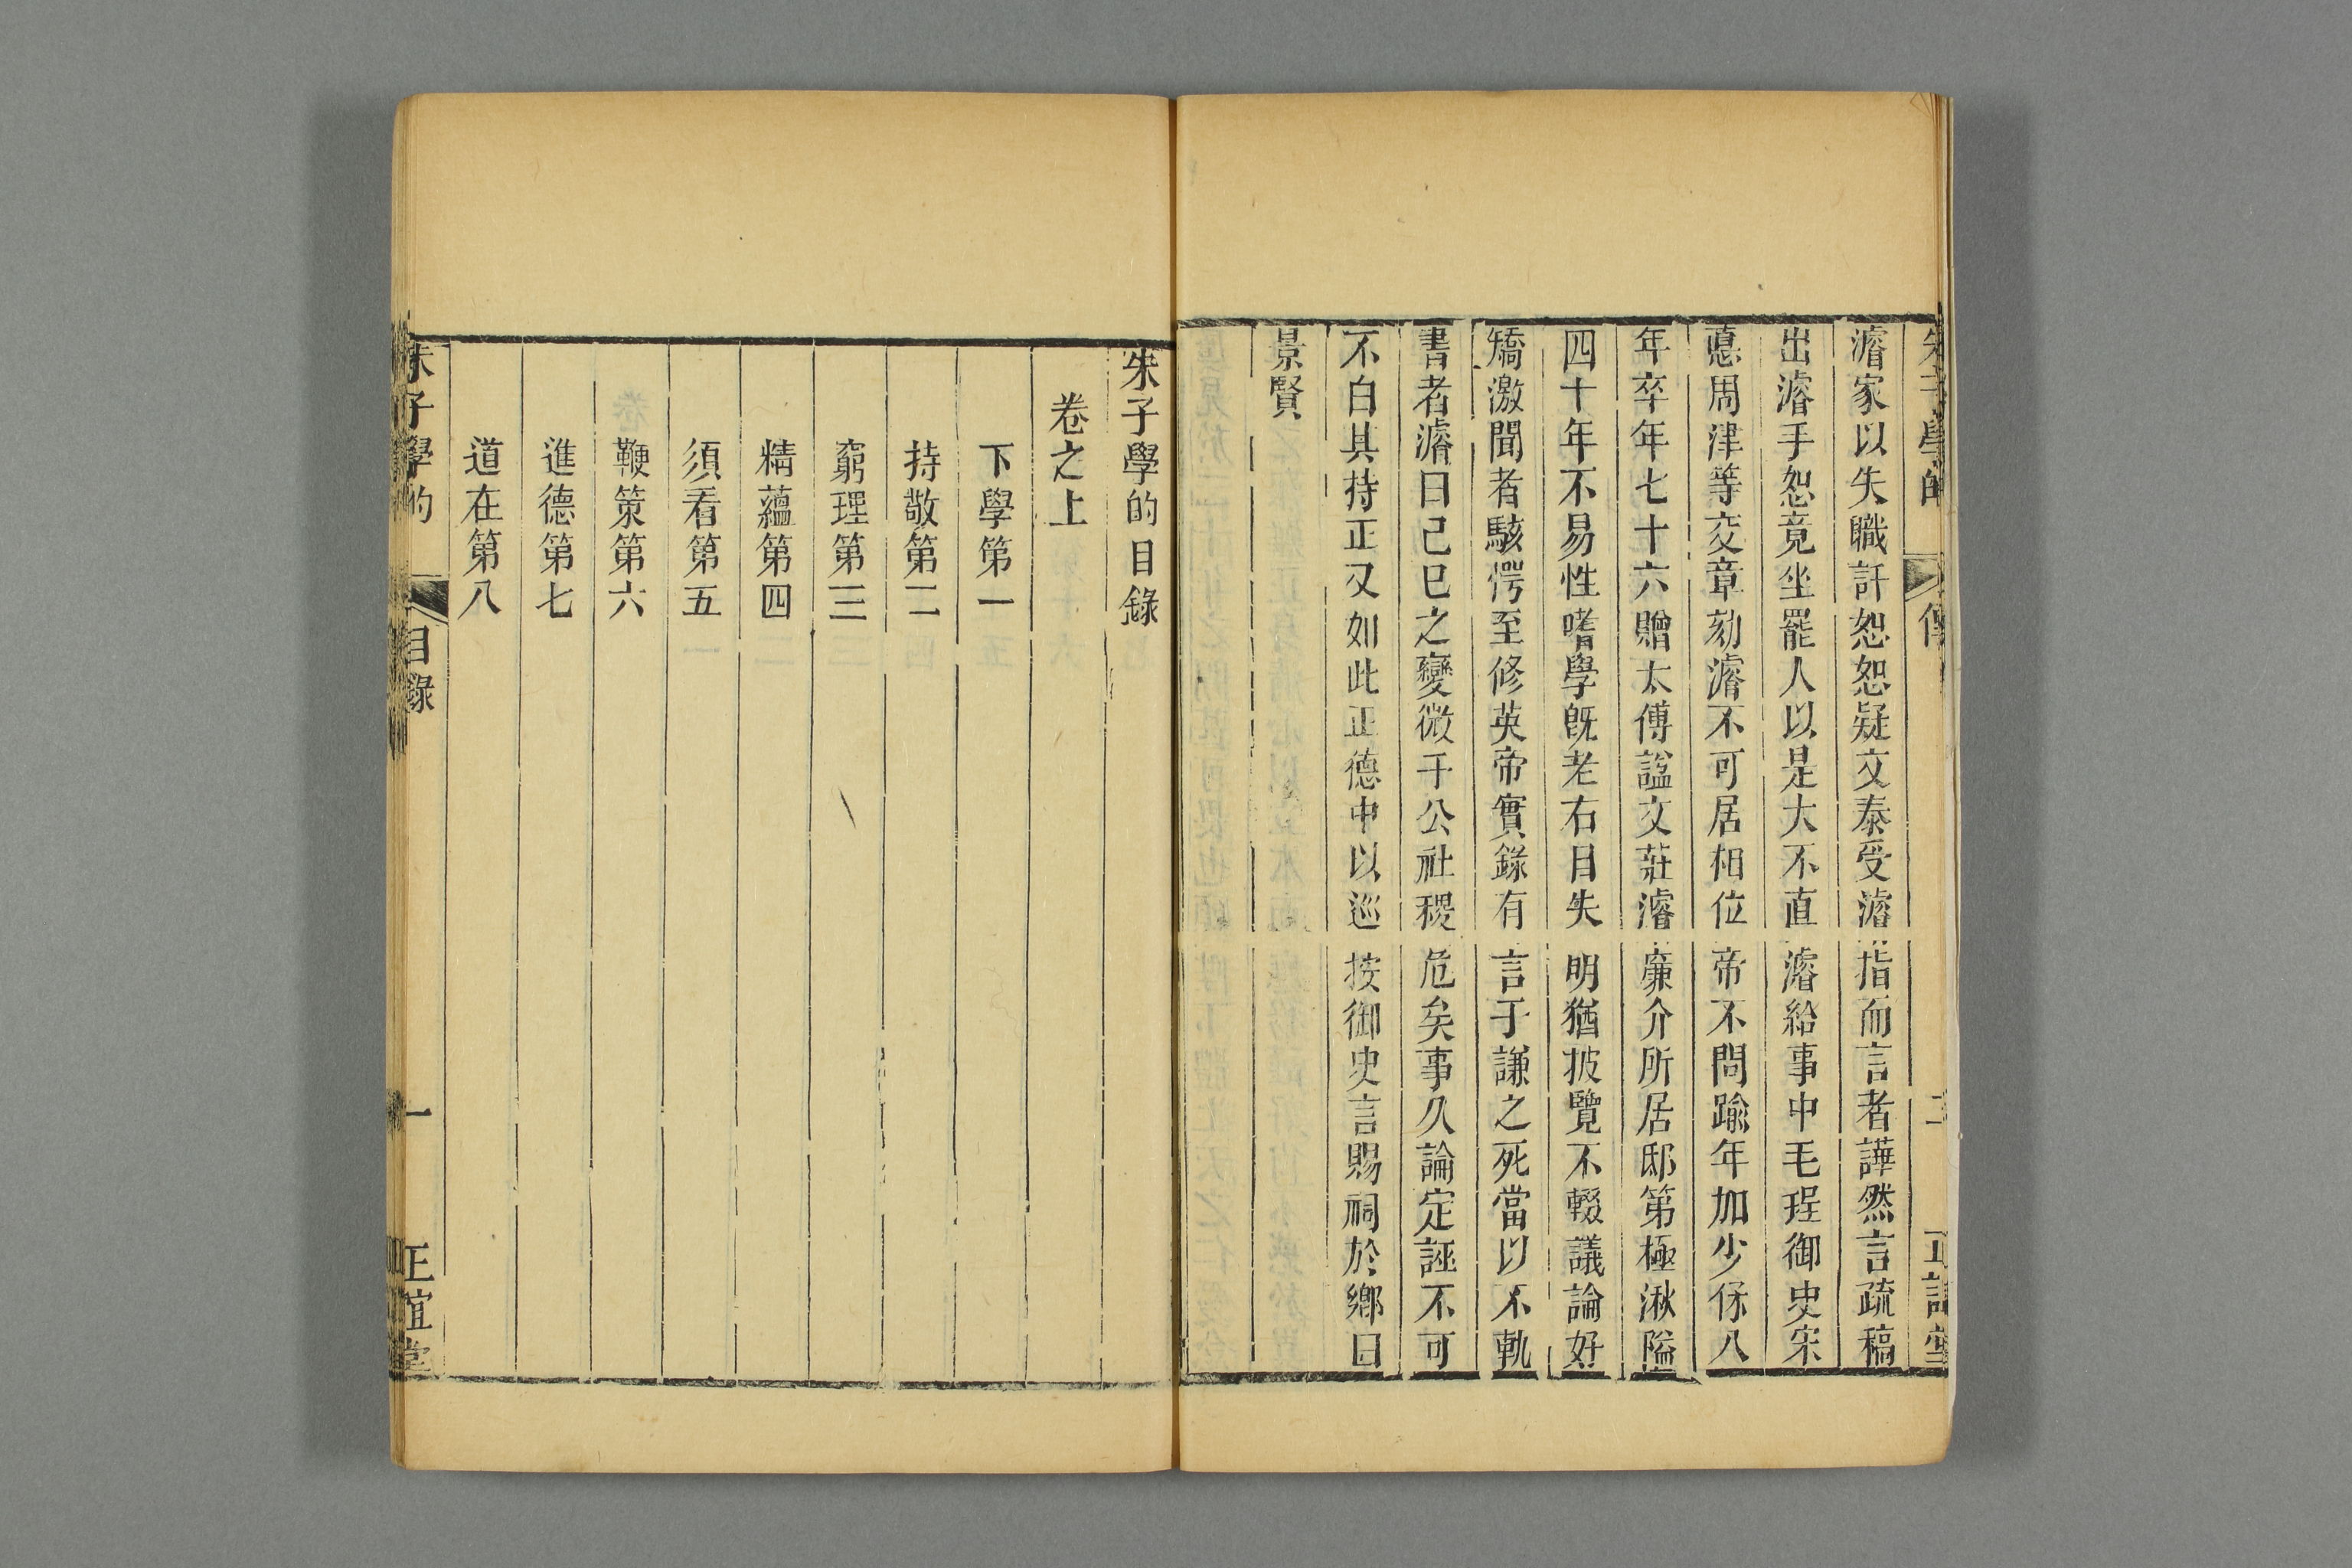 濬家以失職訐恕恕疑文泰受濬指而言者譁然言疏稿
出濬手恕竟坐罷人以是大不直濬給事中毛珵御史宋
悳周津等交章劾濬不可居相位帝不問踰年加少保八
年卒年七十六贈太傅諡文莊濬廉介所居邸第極湫隘
四十年不易性嗜學旣老右目失明猶披覽不輟議論好
矯激聞者駭愕至修英帝實錄有言于謙之死當以不軌
書者濬曰己巳之變微于公社稷危矣事久論定誣不可
不白其持正又如此正德中以巡按御史言賜祠於鄉曰
景賢
朱子學的目錄
卷之上
下學第一
持敬第二
窮理第三
精蘊第四
須看第五
鞭策第六
進德第七
道在第八
朱子學的 目錄 一 正誼堂